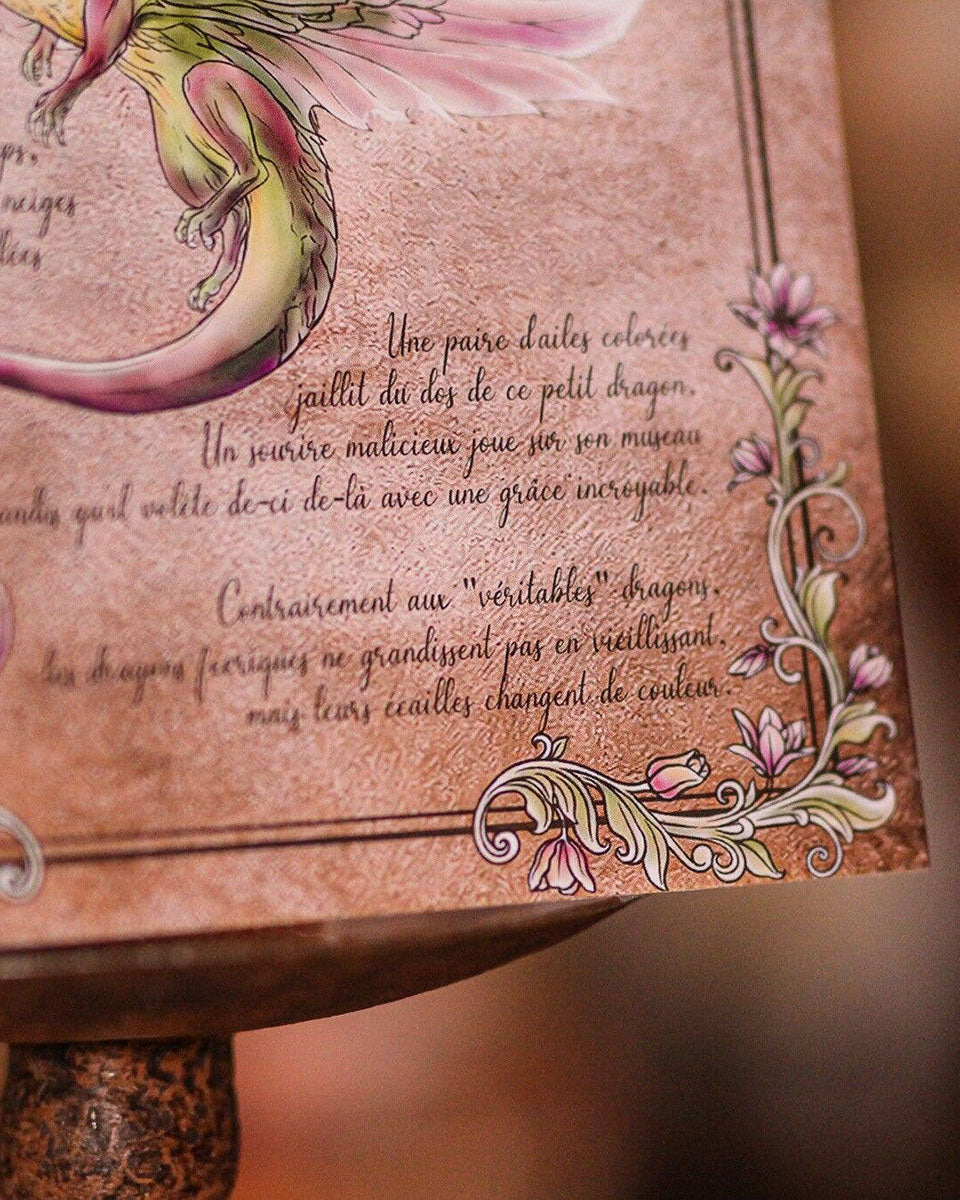 neiges
Une paire d'ailes colorées
jaillit du dos de ce petit dragon.
Un sourire malicieux joue sur son museau
qu'il volète de-ci de-là avec une grâce incroyable.
Contrairement aux "véritables" dragons,
les dragons féeriques ne grandissent pas en vieillissant,
mais leurs écailles changent de couleur.